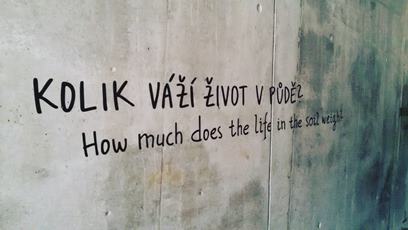 KOLIK VÁŽÍ ŽIVOT V PŮDĚ?
How much does the life in the soil weight?